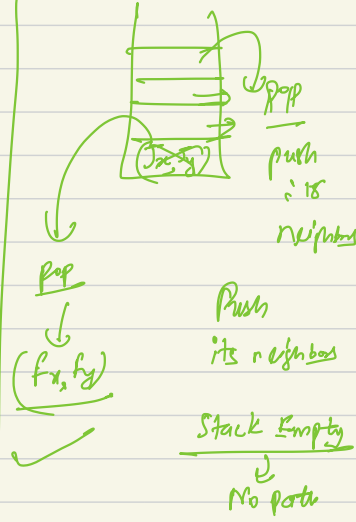 pop
push
its
neighbors
(fx, fy)
pop
(fx, fy)
Push
its neighbors
Stack Empty
No path